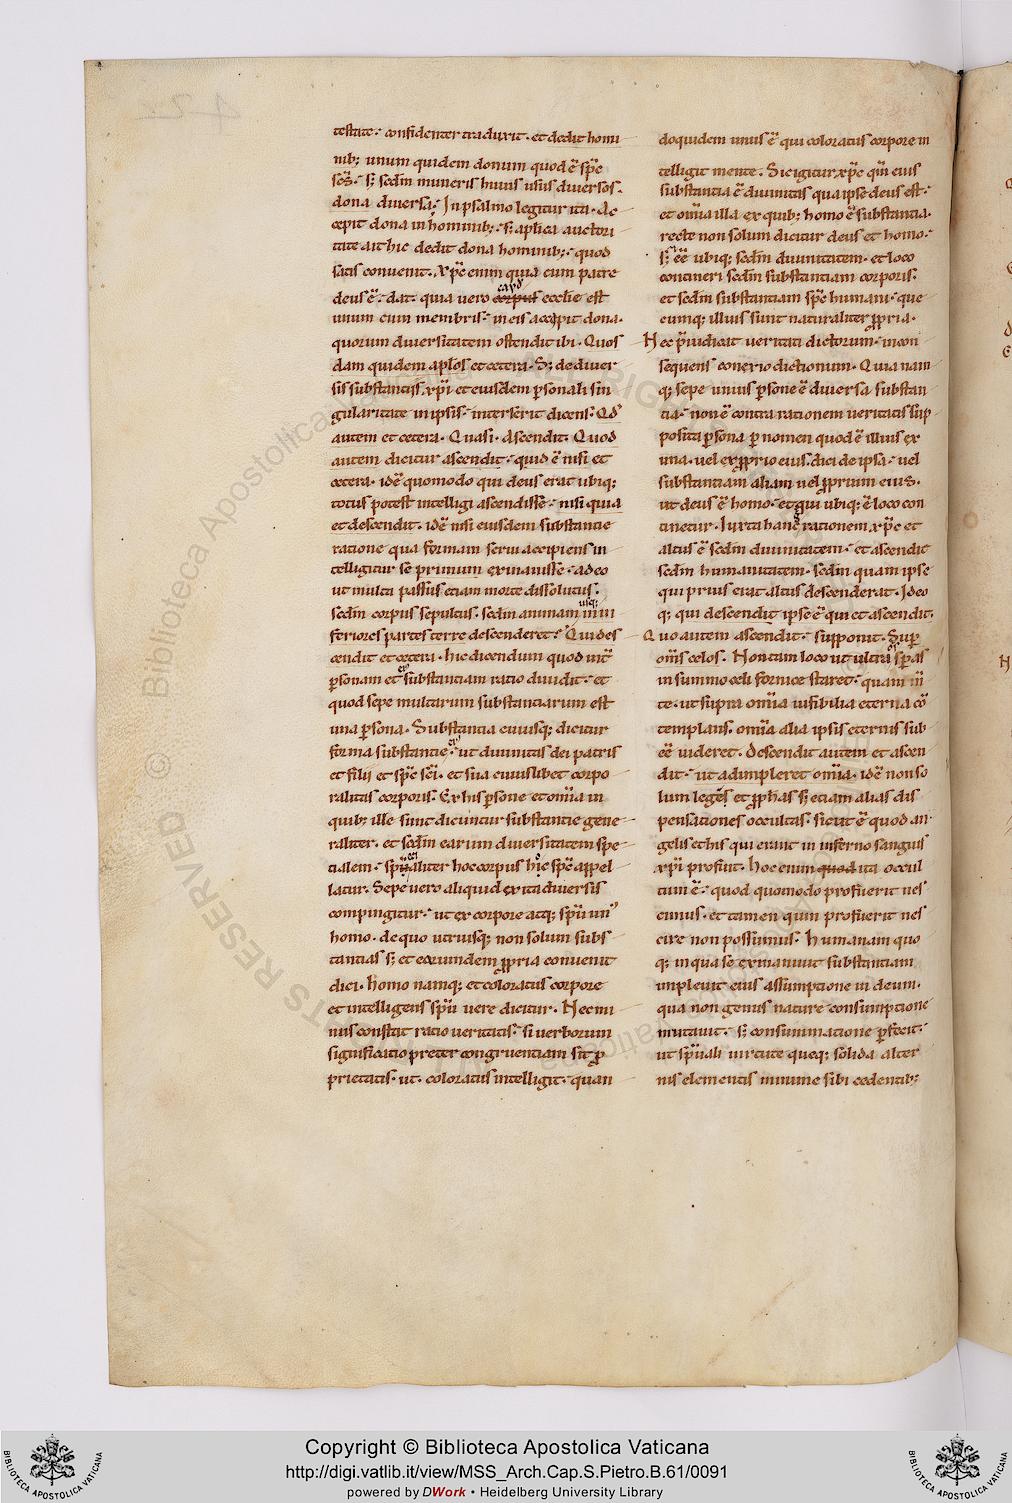 testate. confidenter traduxit. et dedit homi
nib; unum quidem donum quod ē sp̄c
sc̄s. s; scdm muneris huius usus diuersos.
dona diuersa. In psalmo legitur ita. Ac
cepit dona in hominib;. s; aplica auctori
tate ait hic dedit dona hominib;. quod
satis conuenit. xp̄c enim quia cum patre
deus ē. dat. quia uero corpus caput ecclie est
unum cum membris. in eis accepit dona.
quorum diuersitatem ostendit ibi. Quos
dam quidem aplos et cetera. S; de diuer
sis substantiis xp̄i et eiusdem psonali sin
gularitate in ipsis. interserit dicens. Qd
autem et cetera. Quasi. ascendit. Quod
autem dicitur ascendit. quid ē nisi et
cetera. idē quomodo qui deus erat ubiq;
totus potest intelligi ascendisse. nisi quia
et descendit. idē nisi eiusdem substantie
ratione qua formam serui accipiens in
telligitur se primum exinanisse. adeo
ut multa passus etiam morte dissolutus.
scdm corpus sepultus. scdm animam usq; in in
feriores partes terre descenderet. Qui des
cendit et cetera. hic dicendum quod int̄
psonam et substantiam ratio diuidit. et
quod sepe multarum substantiarum est
una psona. Substantia cuiusq; dicitur
forma substantie. ut diuinitas dei patris
et filii et sp̄c sc̄i. et sua cuiuslibet corpo
ralitas corporis. Ex his psone et om̄ia in
quib; ille sunt dicuntur substantie gene
raliter. et scdm earum diuersitatem spe
cialem. sp̄ualiter hoc corpus hic sp̄c appel
latur. Sepe uero aliquid ex ita diuersis
compingitur. ut ex corpore atq; sp̄u un'
homo. de quo utriusq; non solum subs
tantias s; et eorundem ppria conuenit
dici. homo namq; et coloratus corpore
et intelligens sp̄u uere dicitur. Nec mi
nus constat ratio ueritatis. si uerborum
significatio preter congruentiam sit p
prietatis. ut. coloratus intelligit. quan
doquidem unus ē qui coloratus corpore in
telligit mente. Sic igitur xp̄c qm̄ eius
substantia ē diuinitas qua ipse deus est.
et om̄ia illa ex quib; homo ē substantia.
recte non solum dicitur deus et homo.
s; ēē ubiq; scdm diuinitatem. et loco
contineri scdm substantiam corporis.
et scdm substantiam sp̄c humani. que
cumq; illius sunt naturaliter ppria.
Nec p̄iudicat ueritati dictorum. incon
sequens conexio dictionum. Quia nam
q; sepe unius psone ē diuersa substan
tia. non ē contra rationem ueritatis sup
posita psona p nomen quod ē illius ex
una. uel ex pprio eius. dici de ipsa. uel
substantiam aliam uel pprium eius.
ut deus ē homo. et qui ubiq; ē loco con
tinetur. Iuxta hanc rationem xp̄c et
altus ē scdm diuinitatem. et ascendit
scdm humanitatem. scdm quam ipse
qui prius erat altus descenderat. Ideo
q; qui descendit ipse ē qui et ascendit.
Quo autem ascendit. supponit. Sup
om̄s celos. Non tam loco ut ultra speras
in summo celi fornice staret. quam m̄
te. ut supra om̄ia uisibilia eterna cō
templans. om̄ia alia ipsis eternis sub
ēē uideret. descendit autem et ascen
dit. ut adimpleret om̄ia. idē non so
lum leges et pphas s; etiam alias dis
pensationes occultas. sicut ē quod an
gelis et his qui erant in inferno sanguis
xp̄i profuit. hoc enim quod ita occul
tum ē. quod quomodo profuerit nes
cimus. et tamen quin profuerit nes
cire non possumus. humanam quo
q; in qua se exinaniuit substantiam
impleuit eius assumptione in deum.
qua non genus nature consumptione
mutauit. s; consummatione pfecit.
ut sp̄uali uirtute queq; solida alter
nis elementis minime sibi cedentib;
Copyright © Biblioteca Apostolica Vaticana
http://digi.vatlib.it/view/MSS_Arch.Cap.S.Pietro.B.61/0091
powered by DWork • Heidelberg University Library